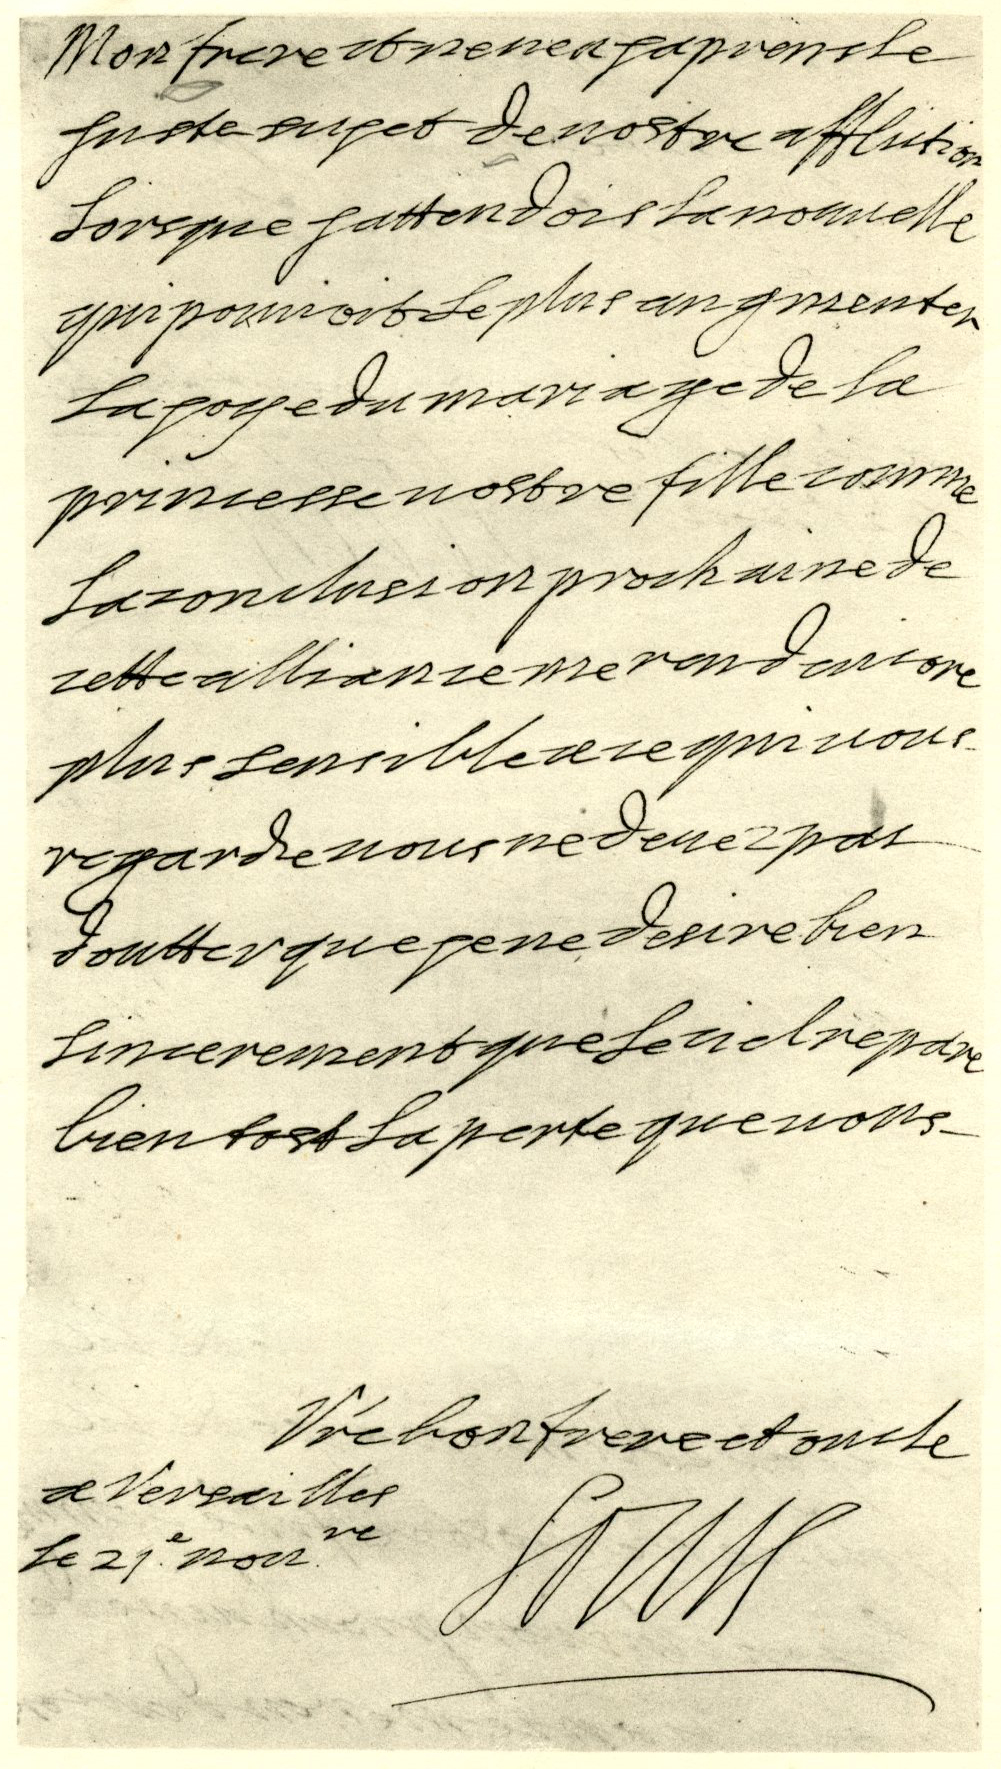 Mon frere et neueu japrens le
juste sujet de vostre affliction
lorsque jattendois la nouuelle
qui pouuoit le plus augmenter
la joye du mariage de la
princesse vostre fille comme
la conclusion prochaine de
cette alliance me rend encore
plus sensible a ce qui vous
regarde vous ne deuez pas
doutter que je ne desire bien
sincerement que le ciel repare
bien tost la perte que vous
Vre bon frere et oncle
a Versailles
le 21e. nou.re
Louis